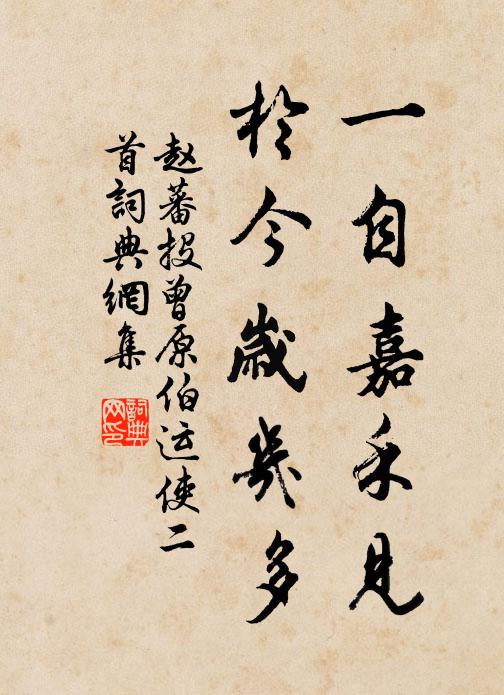 一自嘉禾見
於今歲幾多
赵蕃投曾原伯运使二
首詞典網集
詞典
网印